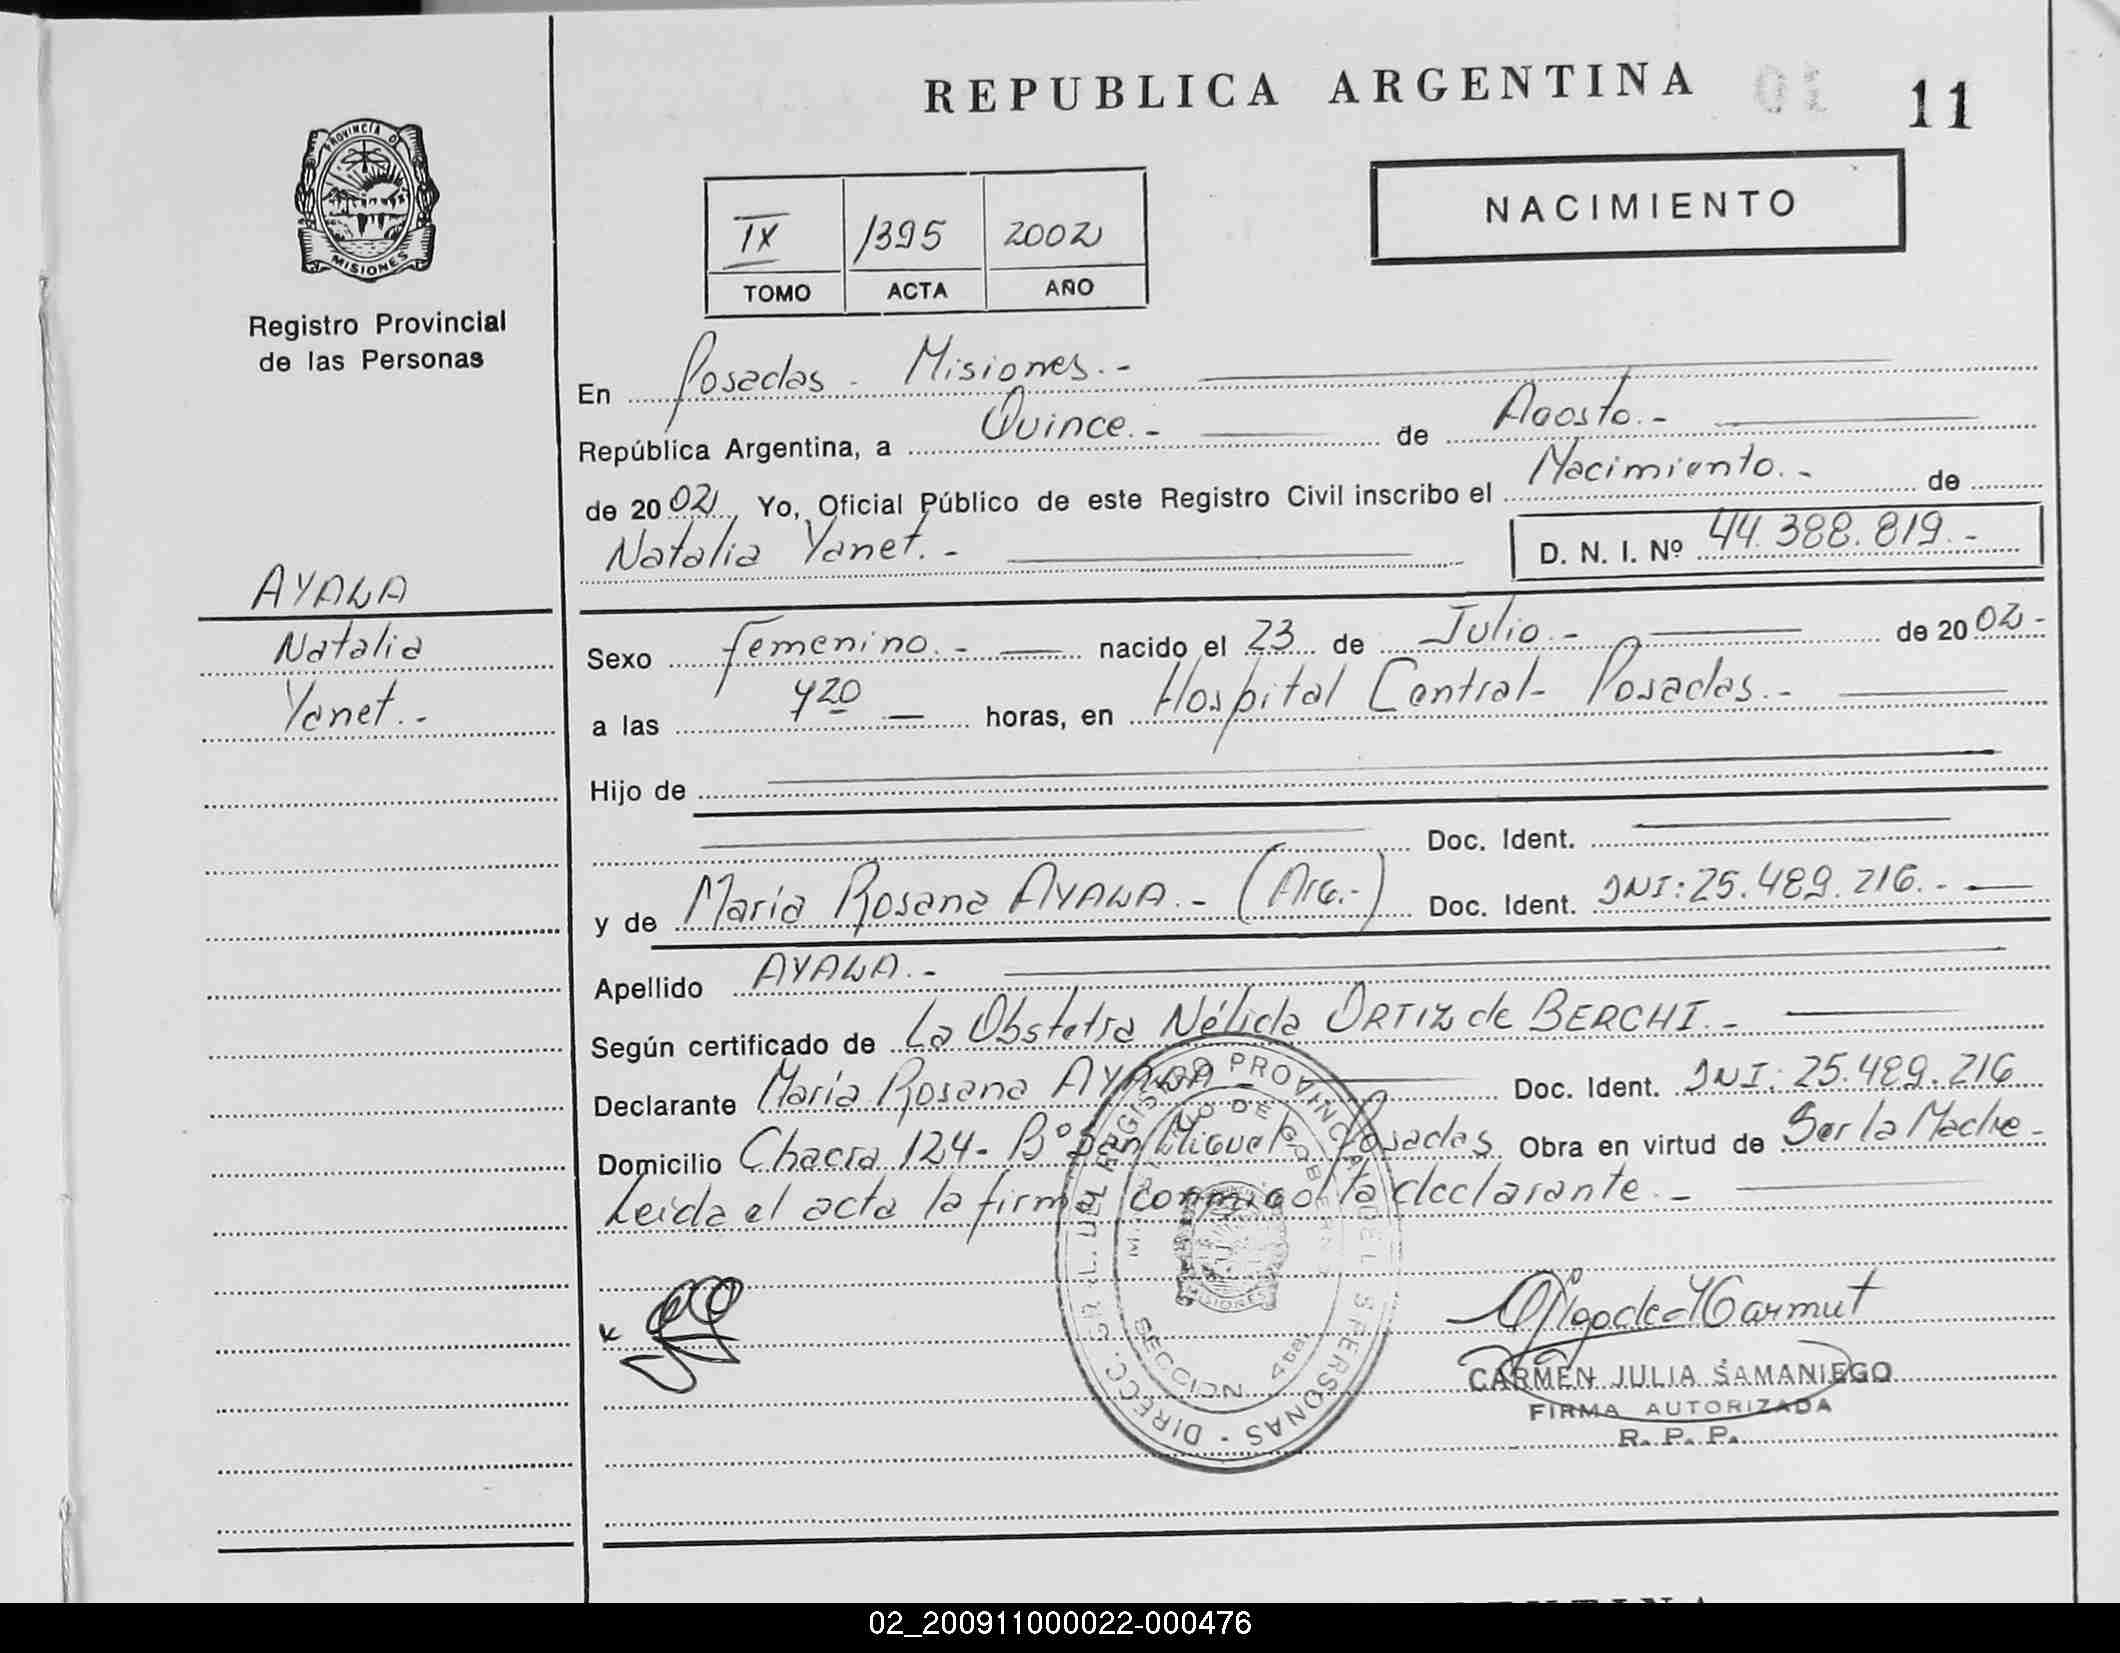 REPUBLICA ARGENTINA
11
PROVINCIA D
MISIONES
Registro Provincial
de las Personas
NACIMIENTO
IX 1395 2002
TOMO ACTA AÑO
En Posadas - Misiones.-
República Argentina, a Quince.- de Agosto.-
de 2002 Yo, Oficial Público de este Registro Civil inscribo el Nacimiento.- de
Natalia Yanet.- D. N. I. Nº 44.388.819.-
AYALA
Natalia
Yanet.-
Sexo Femenino.- nacido el 23 de Julio.- de 2002-
a las 4 20 horas, en Hospital Central- Posadas.-
Hijo de
Doc. Ident.
y de María Rosana AYALA.- (Arg.-) Doc. Ident. DNI: 25.489.216.-
Apellido AYALA.-
Según certificado de La Obstetra Nélida ORTIZ de BERCHI.-
Declarante María Rosana AYALA- Doc. Ident. DNI: 25.489.216
Domicilio Chacra 124- Bº San Miguel- Posadas Obra en virtud de Ser la Madre-
Leída el acta la firma conmigo la declarante.-
REGISTRO PROVINCIAL DE L S PERSONAS - DIRECC. GR L. DEL
DE GOBIERNO
MISIONES
SECCION 4ta
CARMEN JULIA SAMANIEGO
FIRMA AUTORIZADA
R. P. P.
02_200911000022-000476